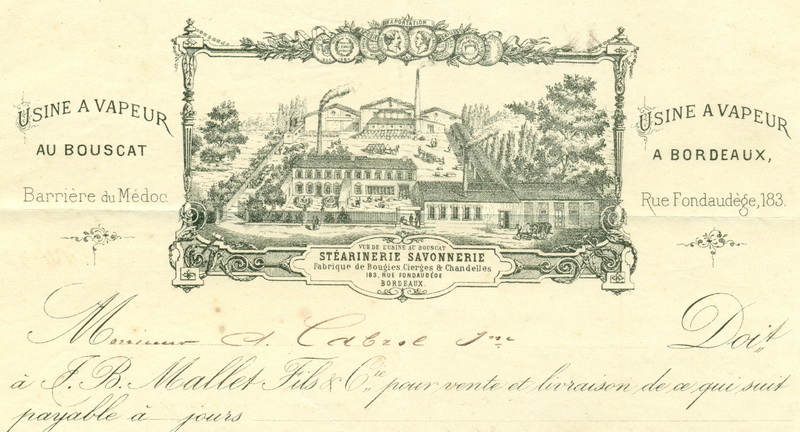 EXPORTATION
USINE A VAPEUR
AU BOUSCAT
Barrière du Médoc
USINE A VAPEUR
A BORDEAUX,
Rue Fondaudège, 183.
VUE DE L'USINE AU BOUSCAT
STÉARINERIE SAVONNERIE
Fabrique de Bougies, Cierges & Chandelles
183, RUE FONDAUDÈGE
BORDEAUX.
Monsieur A. Cabrol Jne Doit,
à F. B. Mallet Fils & Cie, pour vente et livraison de ce qui suit
payable à jours